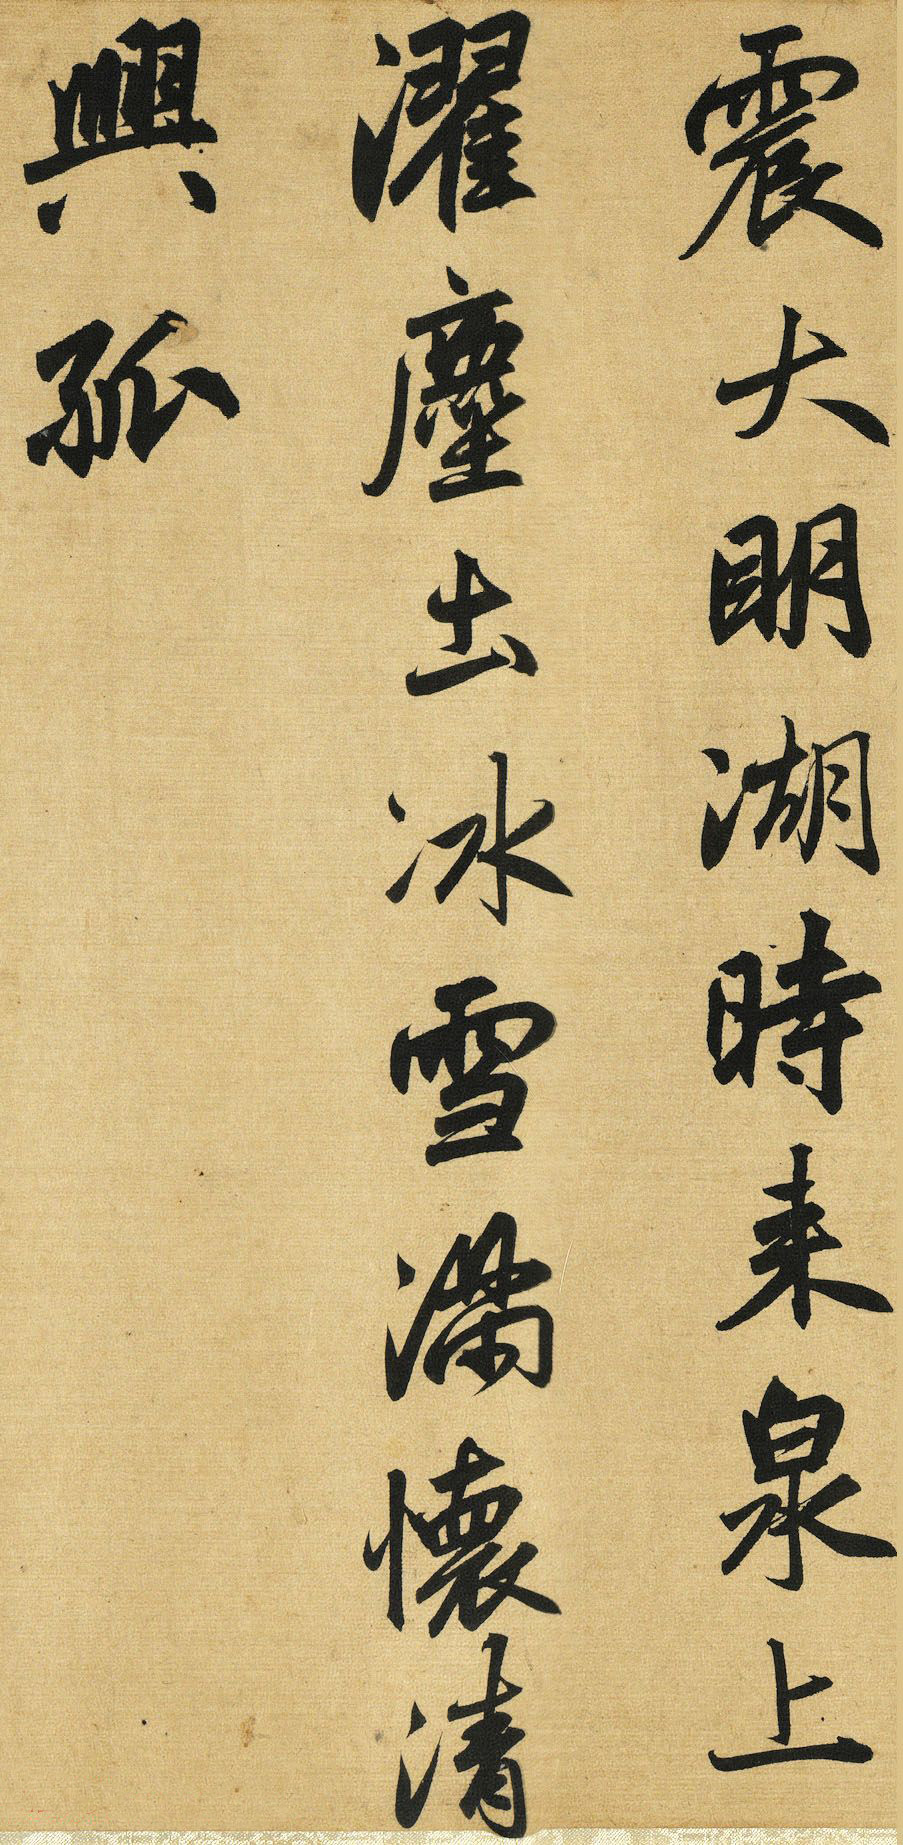 震大明湖時来泉上
濯塵出冰雪滿懷清
興孤